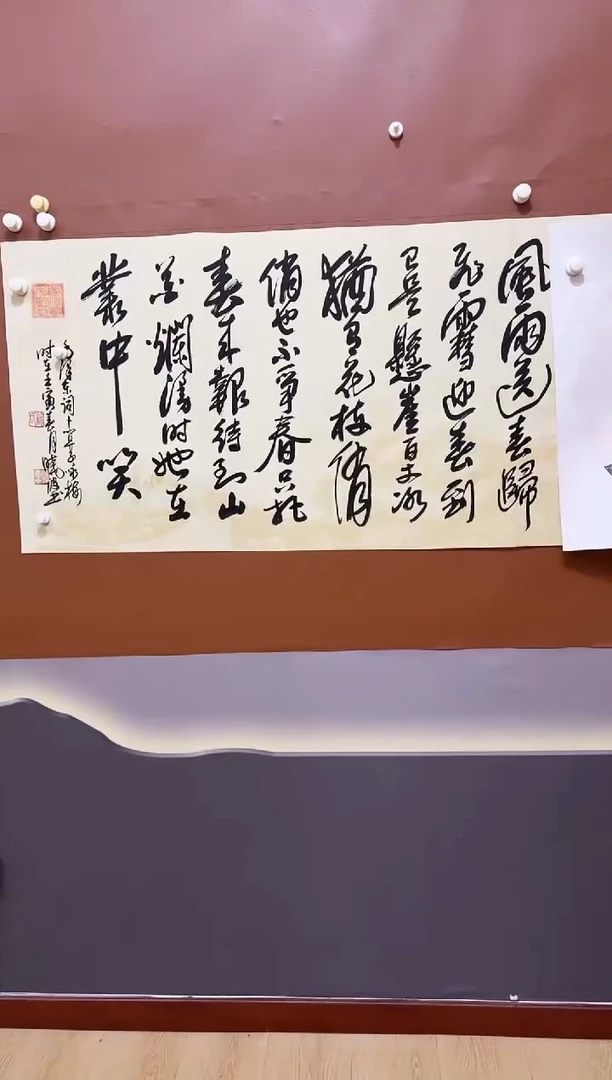 風雨送春歸
飛雪迎春到
已是懸崖百丈冰
猶有花枝俏
俏也不爭春只把
春來報待到山
花爛漫时她在
叢中笑
毛澤东词卜算子咏梅
时在壬寅春月曉波